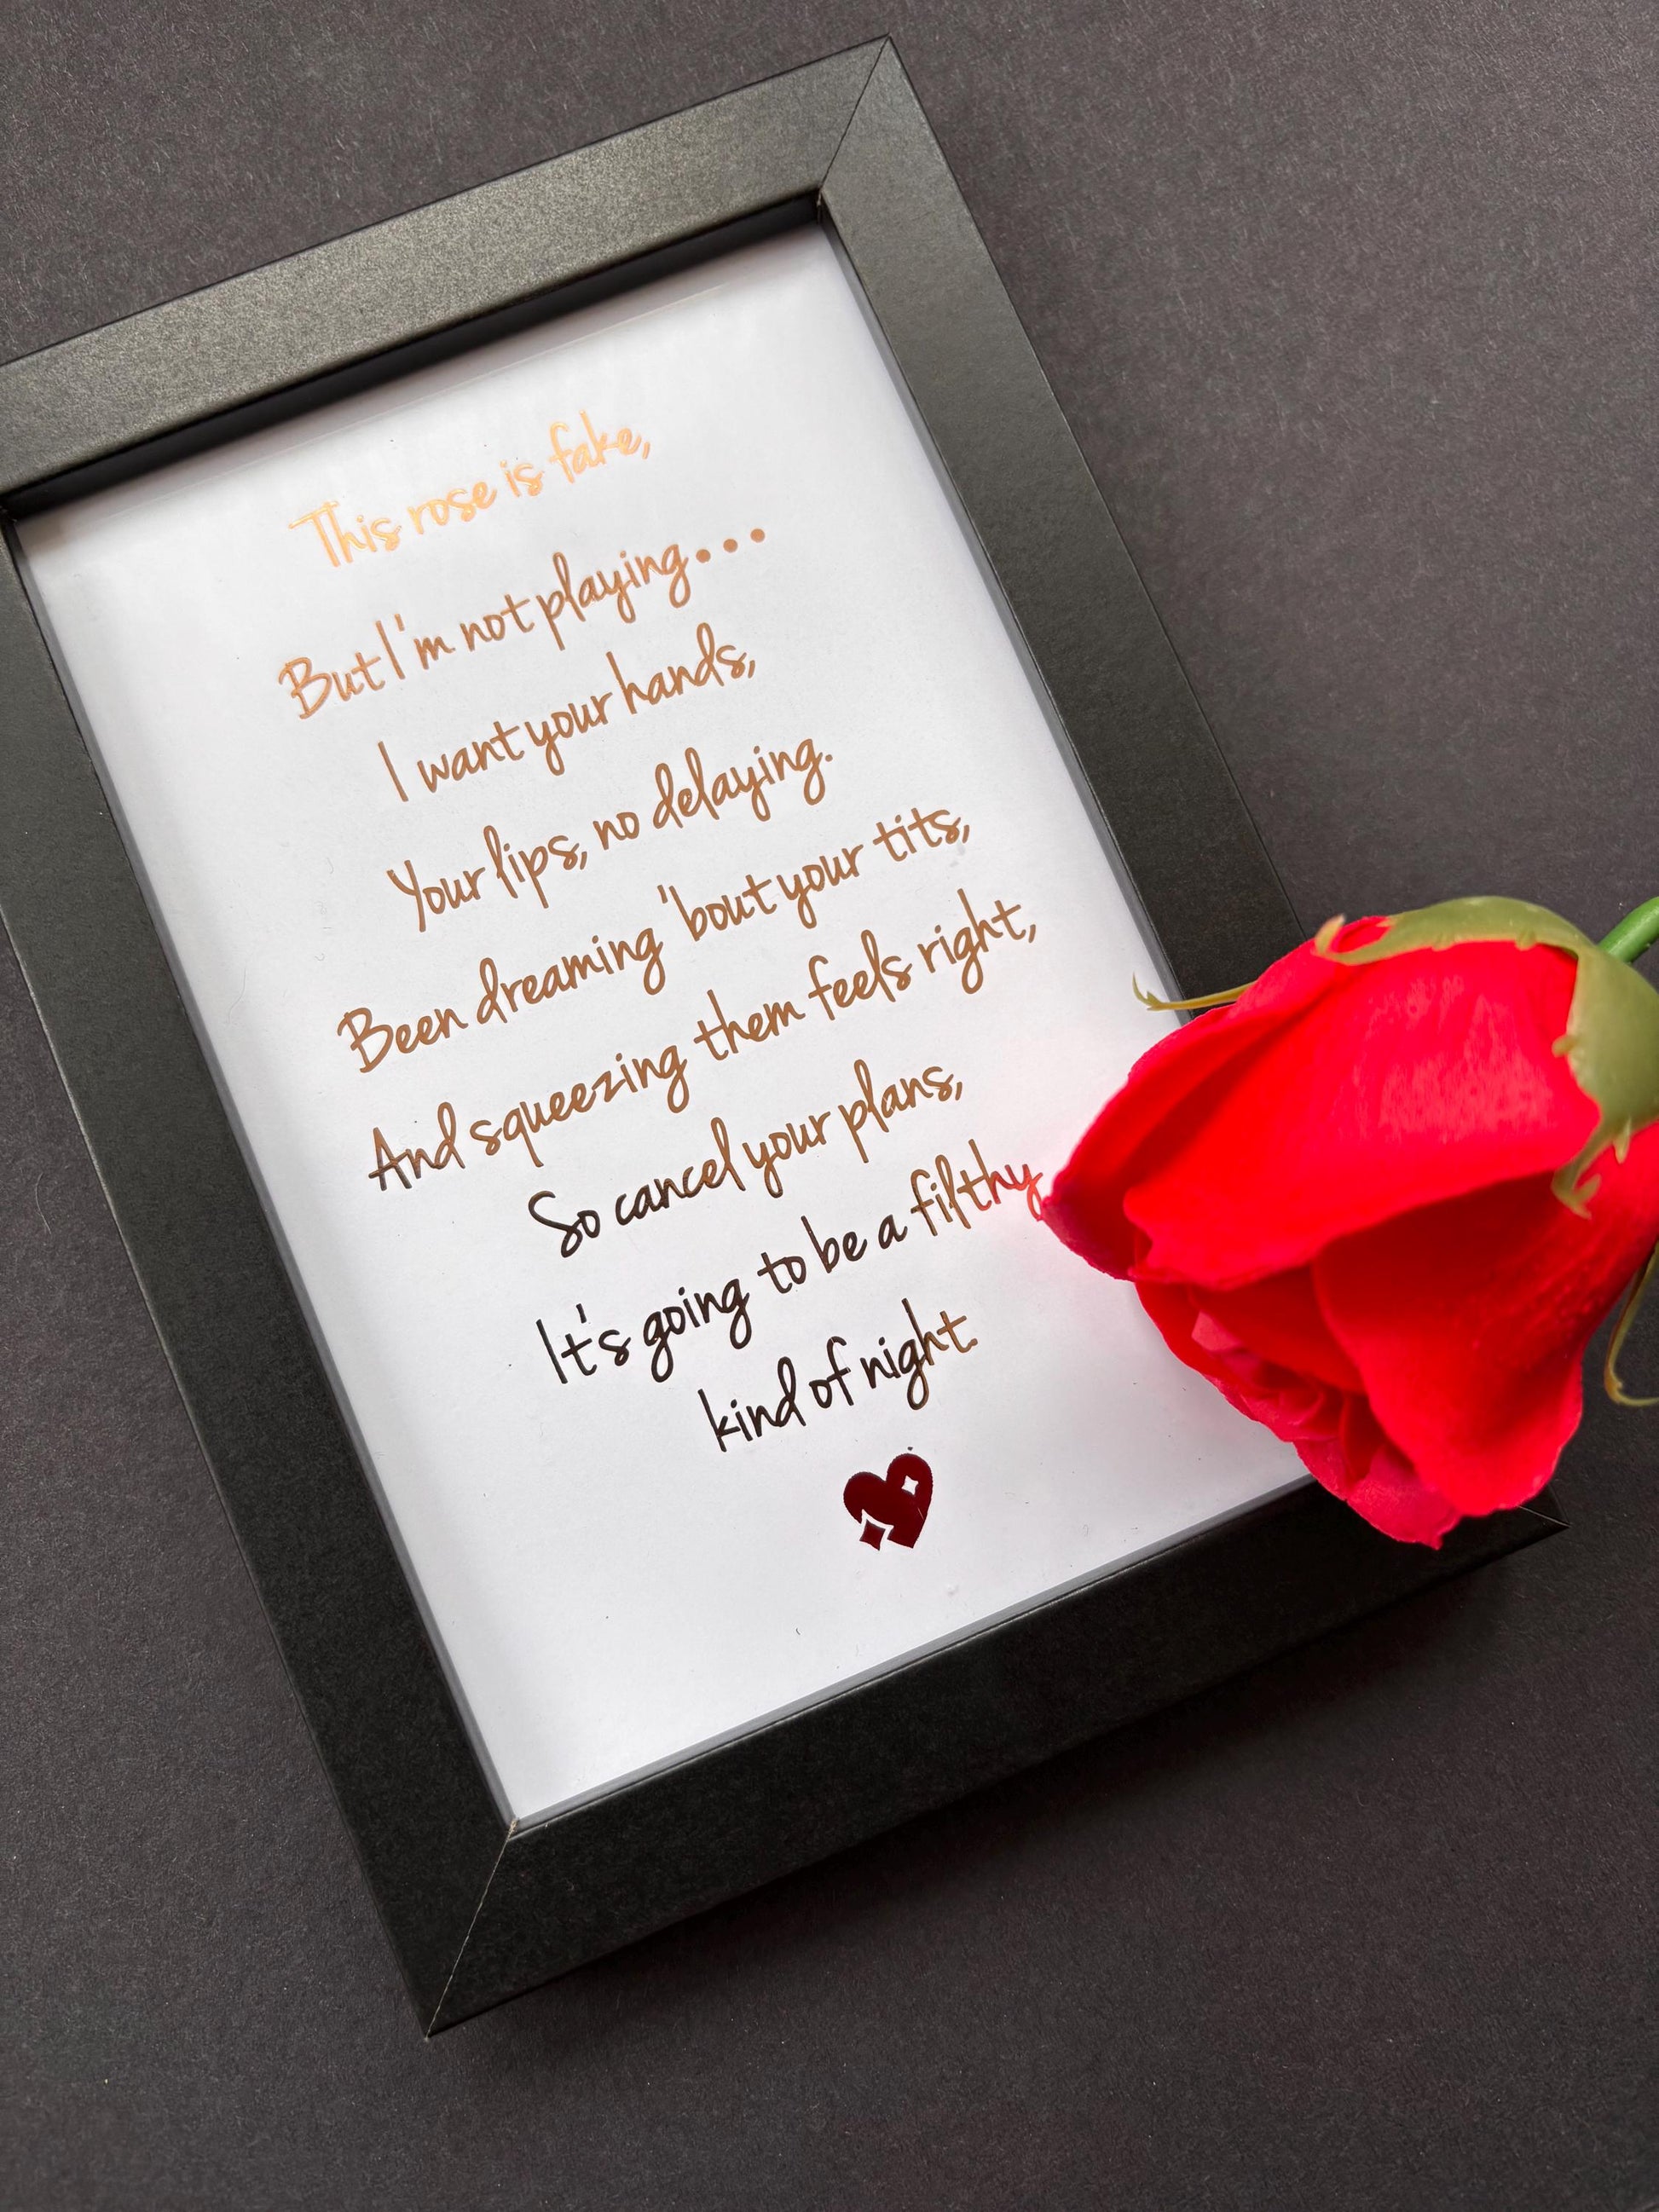 This rose is fake,
But I'm not playing...
I want your hands,
Your lips, no delaying.
Been dreaming 'bout your tits,
And squeezing them feels right,
So cancel your plans,
It's going to be a filthy
kind of night.